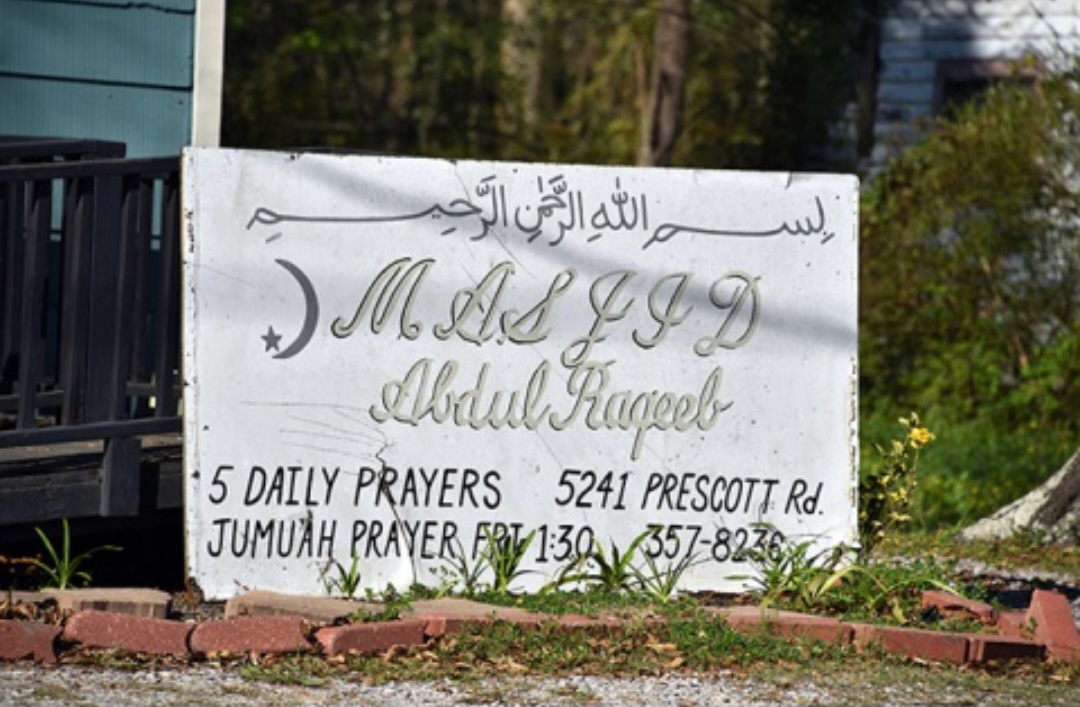 بِسم اللهِ الرَّحمٰنِ الرَّحِيم
MASJID
Abdul Raqeeb
5 DAILY PRAYERS 5241 PRESCOTT Rd.
JUMU'AH PRAYER FRI 1:30 357-8236